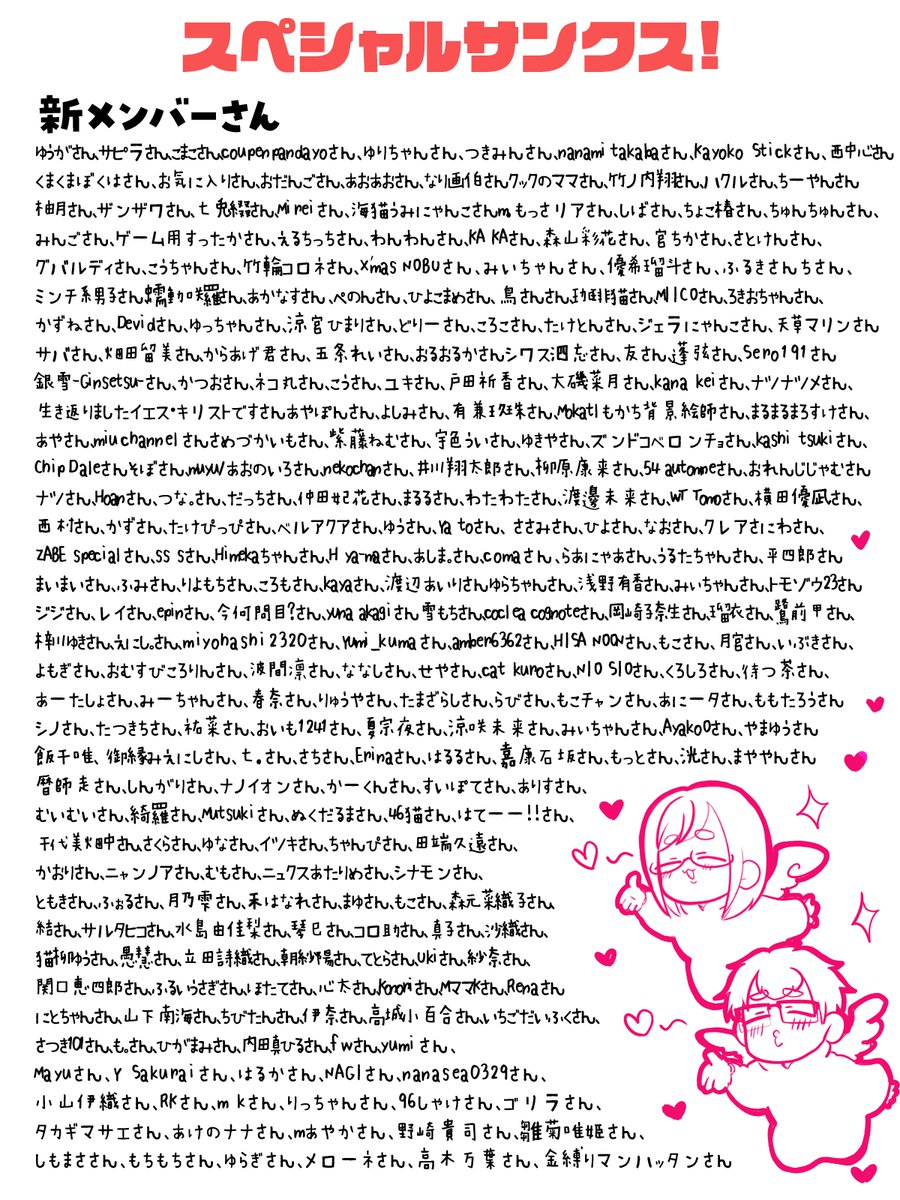 スペシャルサンクス!
新メンバーさん
ゆうがさん、サピラさん、こまこさん、coupenpandayoさん、ゆりちゃんさん、つきみんさん、nanami takabaさん、Kayoko Stickさん、西中心さん
くまくまぼくはさん、お気に入りさん、おだんごさん、あおあおさん、なり画伯さん、クックのママさん、竹ノ内翔さん、ハクルさん、ちーやんさん
柚月さん、ザンザワさん、七兎綴さん、Mineiさん、海猫うみにゃんこさん、m。もっさリアさん、しばさん、ちょこ椿さん、ちゅんちゅんさん、
みんごさん、ゲーム用すったかさん、えるちっちさん、わんわんさん、KA KAさん、森山彩花さん、宮ちかさん、さとけんさん、
グバルディさん、こうちゃんさん、竹輪コロネさん、X'mas NOBUさん、みいちゃんさん、優希瑠斗さん、ふるきさんちさん、
ミンチ系男子さん、蠕動加羅さん、あかなすさん、ぺのんさん、ひよこまめさん、鳥さんさん、MIICOさん、ろきおちゃんさん、
かずねさん、Devidさん、ゆっちゃんさん、涼宮ひまりさん、どりーさん、ころこさん、たけとんさん、ジェラにゃんこさん、天草マリンさん
サバさん、畑田留美さん、からあげ君さん、五条れいさん、おるおるかさん、シワス泗志さん、友さん、蓬弦さん、Sero191さん
銀雪-Ginsetsu-さん、かつおさん、ネコ丸さん、こうさん、ユキさん、戸田祈香さん、大磯菜月さん、kana keiさん、ナツナツメさん、
生き返りましたイエス・キリストですさん、あやぽんさん、よしみさん、有兼玖珠さん、Mokatlもかち背景絵師さん、まるまるまろすけさん、
あやさん、miu channelさん、さめづかいもさん、紫藤ねむさん、宇色ういさん、ゆきやさん、ズンドコベロンチョさん、kashi tsukiさん、
Chip Daleさん、そぼさん、muxuV、あおのいろさん、nekochanさん、井川翔太郎さん、柳原康来さん、54 automneさん、おれんじじゃむさん
ナツさん、Hoanさん、つな。さん、だっちさん、仲田妃花さん、まるるさん、わたわたさん、渡邊未来さん、WT Tomoさん、横田優凪さん、
西村さん、かずさん、たけぴっぴさん、ベルアクアさん、ゆうさん、Ya toさん、ささみさん、ひよさん、なおさん、クレアさにわさん、
ZABE specialさん、ss sさん、Himekaちゃんさん、H yamaさん、あしま。さん、comaさん、らあにゃあさん、うるたちゃんさん、平四郎さん
まいまいさん、ふみさん、りよもちさん、ころもさん、kayaさん、渡辺あいりさん、ゆらちゃんさん、浅野有香さん、みいちゃんさん、トモゾウ23さん
ジジさん、レイさん、epinさん、今何問目?さん、yuna akagiさん、雪もちさん、coclea cognoteさん、岡崎子奈生さん、瑠衣さん、鷺前甲さん、
梓川ゆきさん、えにしさん、miyohashi2320さん、yumi_kumaさん、amber6362さん、HISA NOONさん、もこさん、月宮さん、いぶきさん、
よもぎさん、おむすびころりんさん、波間凛さん、ななしさん、せやさん、cat kuroさん、NIO SIOさん、くろしろさん、待つ茶さん、
あーたしょさん、みーちゃんさん、春奈さん、りゅうやさん、たまざらしさん、らびさん、もこチャンさん、あにータさん、ももたろうさん
シノさん、たつきちさん、祐菜さん、おいも1241さん、夏宗夜さん、涼咲未来さん、みいちゃんさん、Ayako0さん、やまゆうさん
飯干唯、御縁みえにしさん、七。さん、さちさん、Eminaさん、はるるさん、嘉康石坂さん、もっとさん、洸さん、まややんさん
暦師走さん、しんがりさん、ナノイオンさん、かーくんさん、すいぽてさん、ありすさん、
むいむいさん、綺羅さん、Mutsukiさん、ぬくだるまさん、46猫さん、はてーー!!さん、
千代美火田中さん、さくらさん、ゆなさん、イツキさん、ちゃんぴさん、田端久遠さん、
かおりさん、ニャンノアさん、むもさん、ニュクスあたりめさん、シナモンさん、
ともきさん、ふぉるさん、月乃雫さん、禾はなれさん、まゆさん、もこさん、森元菜織子さん、
結さん、サルタヒコさん、水島由佳梨さん、琴巳さん、コロ助さん、真子さん、沙織さん、
猫柳ゆうさん、愚慧さん、立田詩織さん、朝紗陽さん、てとらさん、ukiさん、紗奈さん、
関口恵四郎さん、ふるいうさぎさん、ほたてさん、心太さん、Konoriさん、Mママ水さん、Renaさん
にとちゃんさん、山下南海さん、ちびたんさん、伊奈さん、高城小百合さん、いちごだいふくさん、
さつき101さん、も。さん、ひがまみさん、内田真ひるさん、f wさん、yumiさん、
Mayuさん、Y Sakuraiさん、はるかさん、NAGIさん、nanasea0329さん、
小山伊織さん、RKさん、m kさん、りっちゃんさん、96しゃけさん、ゴリラさん、
タカギマサエさん、あけのナナさん、mあやかさん、野崎貴司さん、雛菊唯姫さん、
しもまささん、もちもちさん、ゆらぎさん、メローネさん、高木万葉さん、金縛りマンハッタンさん